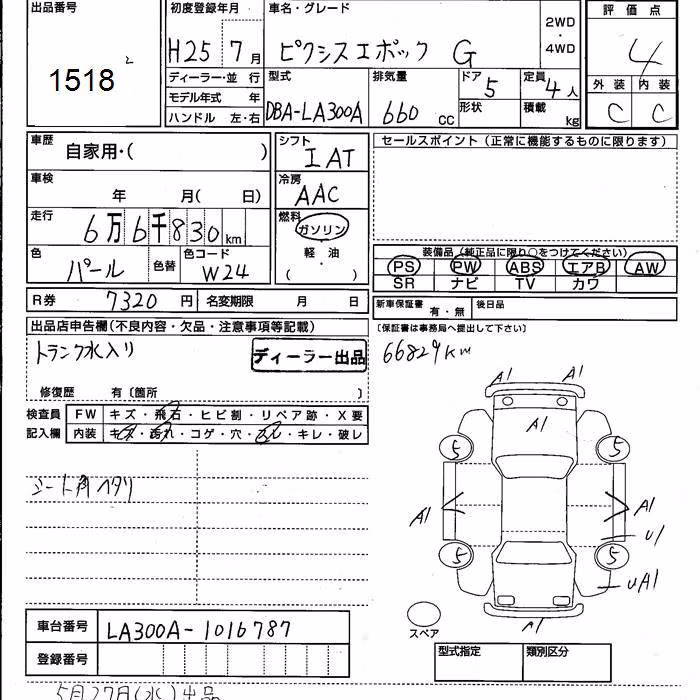 出品番号
1518 2
初度登録年月
H25 7月
車名・グレード
ピクシスエポック G
2WD
・
4WD
評価点
4
外装 内装
C C
ディーラー・並 行
モデル年式 年
ハンドル 左・右
型式
DBA-LA300A
排気量
660 cc
ドア 5
形状
定員 4人
積載 kg
車歴
自家用・( )
シフト
IAT
車検
年 月( 日)
冷房
AAC
走行
6万6千830km
燃料
ガソリン
軽・油
( )
色
パール
色替
色コード
W24
R券 7320円
名変期限 月 日
セールスポイント(正常に機能するものに限ります)
装備品(純正品に限り○をつけてください)
PS PW ABS エアB AW
SR ナビ TV カワ
新車保証書 有・無
後日品
(保証書は事務局へ提出して下さい)
66829km
出品店申告欄(不良内容・欠品・注意事項等記載)
トランク水入り
ディーラー出品
修復歴 有〔箇所 〕
検査員 FW キズ・飛石・ヒビ割・リペア跡・X要
記入欄 内装 キズ・汚れ・コゲ・穴・スレ・キレ・破レ
シート角ヘタリ
A1 A1
A1
5 5
A1 A1
U1
5 5
UA1
A1
スペア
車台番号 LA300A-1016787
登録番号
型式指定 類別区分
5月27日(水)出品